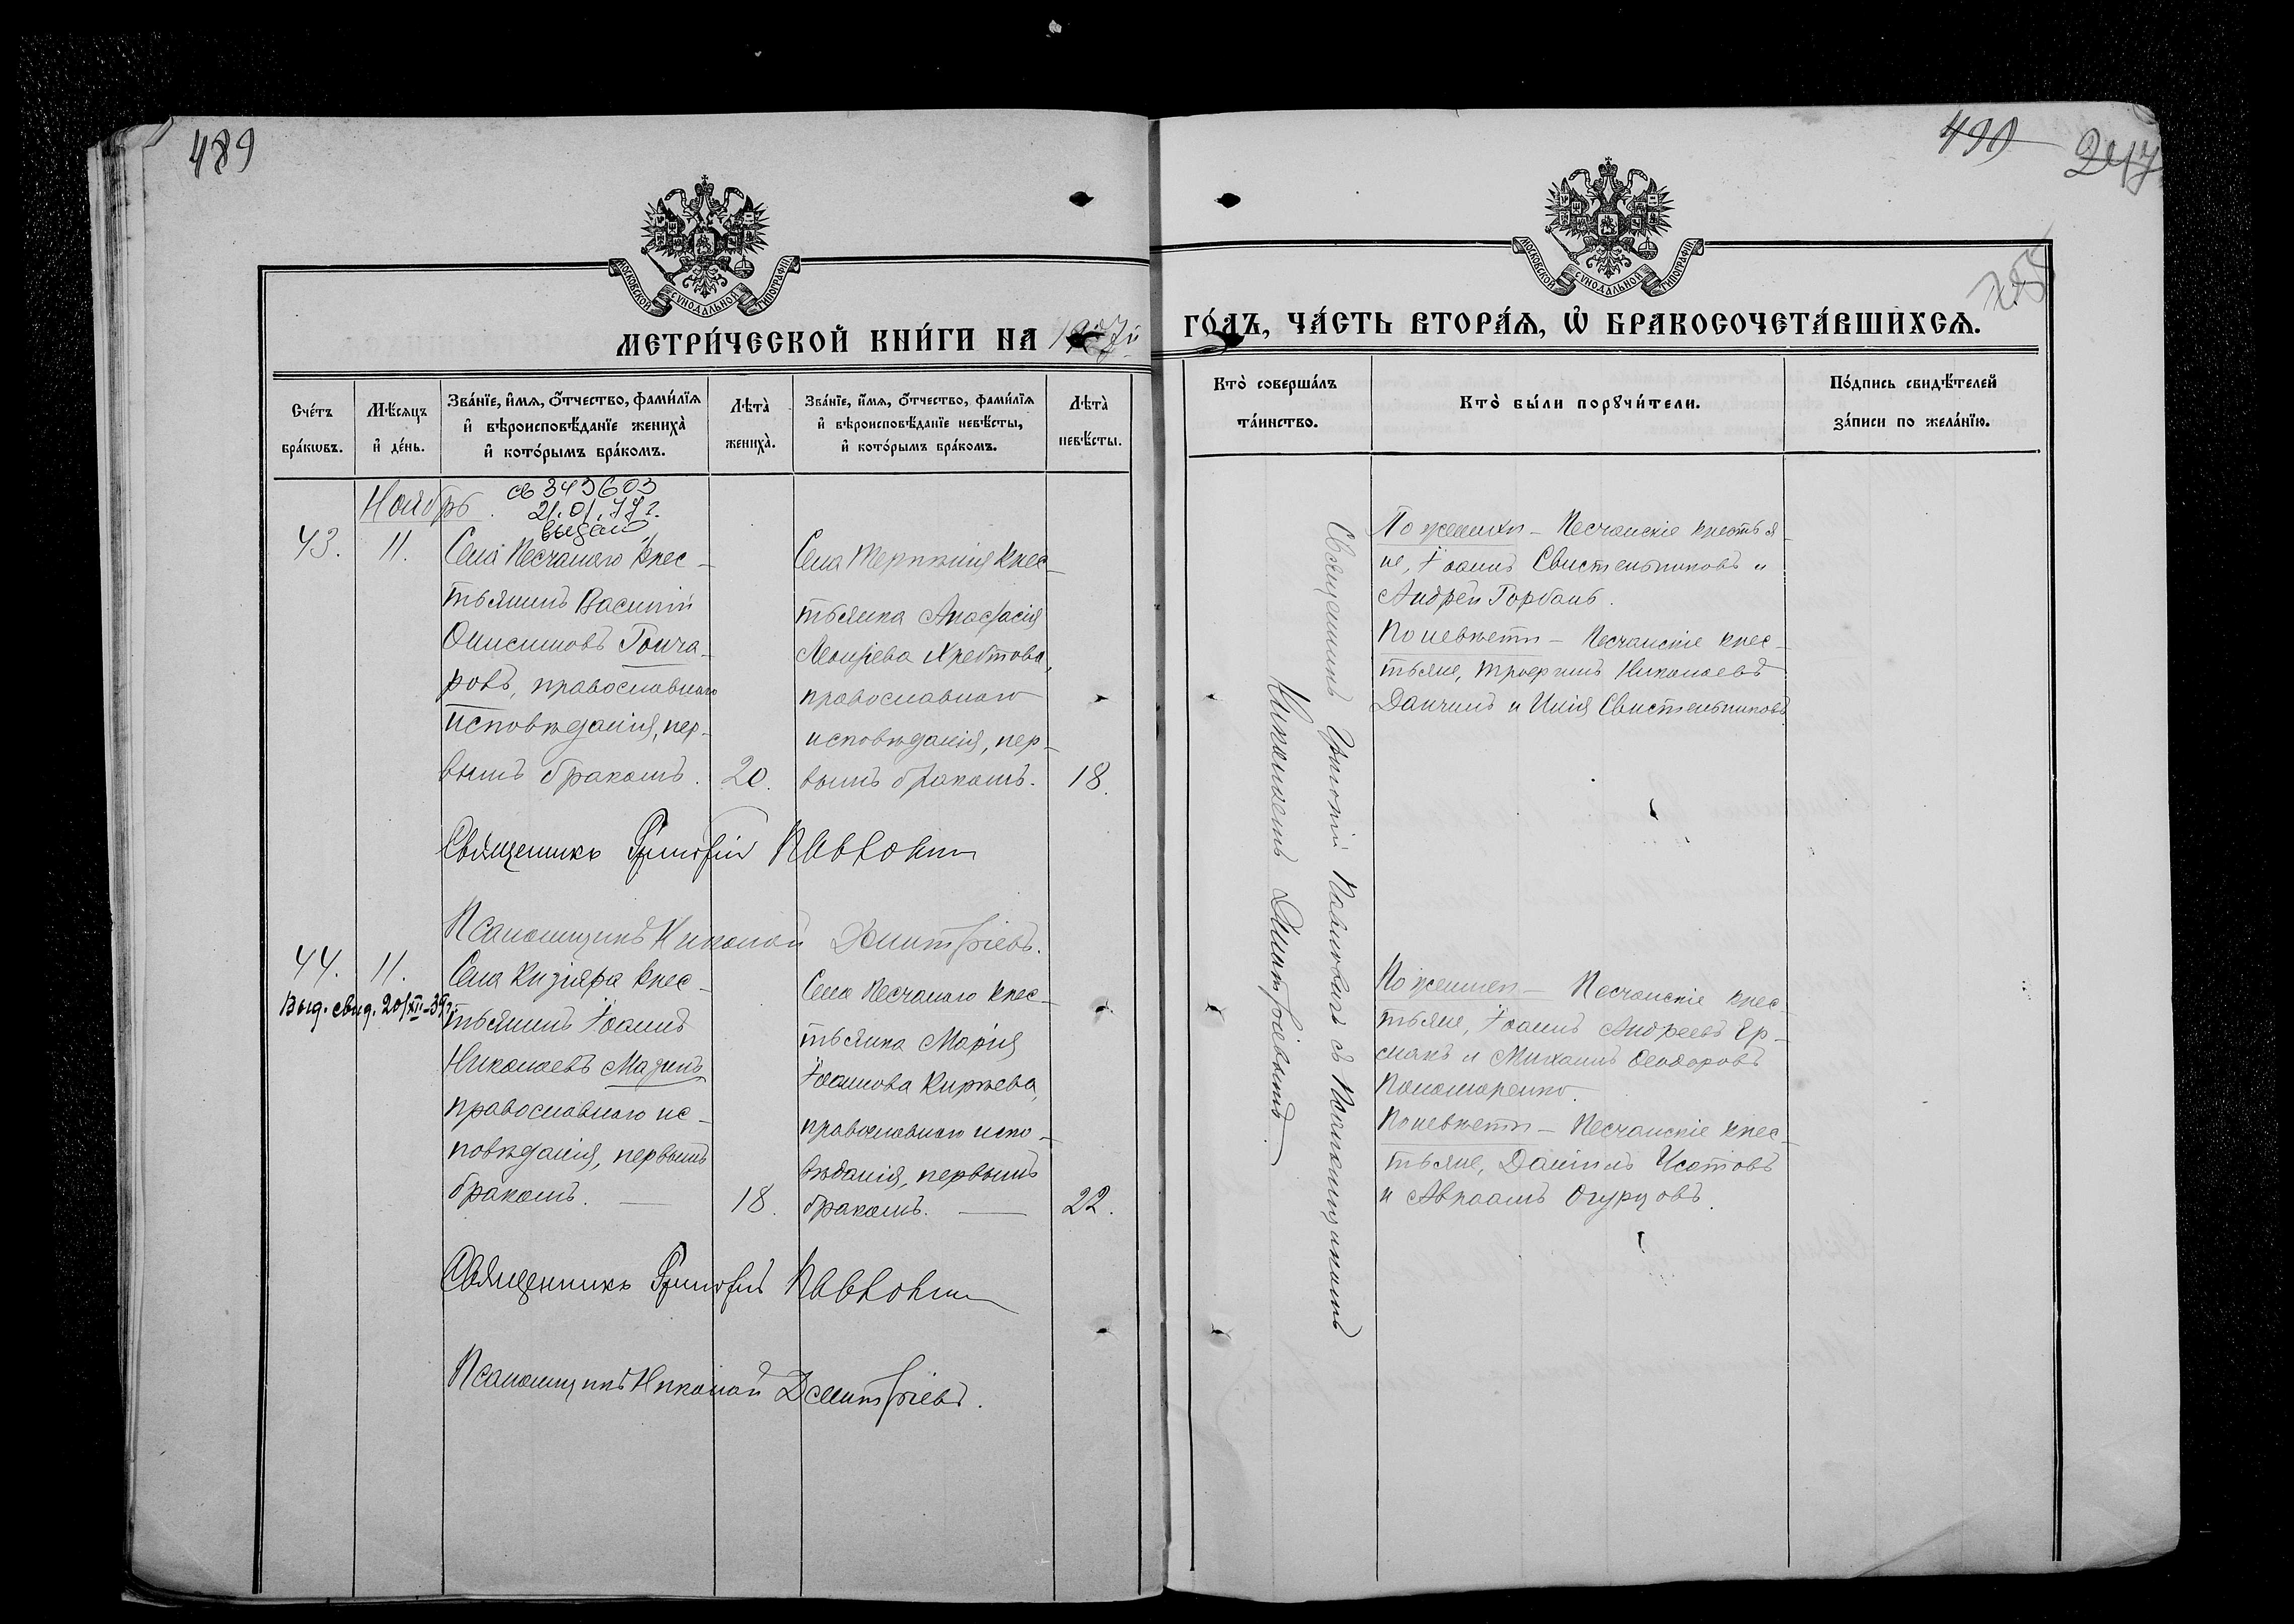 489
490
247
МОСКОВСКОЙ СУНОДАЛЬНОЙ ТИПОГРАФІИ
МОСКОВСКОЙ СУНОДАЛЬНОЙ ТИПОГРАФІИ
МЕТРИ́ЧЕСКОЙ КНИ́ГИ НА
ГО́ДЪ, ЧА́СТЬ ВТОРА́Ѧ, Ѽ БРАКОСОЧЕТА́ВШИХСѦ.
Сче́тъ бра́кѡвъ.
Мѣ́сѧцъ и҆ де́нь.
Зва́нїе, и҆́мѧ, ѻ҆́тчество, фами́лїѧ и҆ вѣроисповѣ́данїе жениха̀ и҆ кото́рымъ бра́комъ.
Лѣта̀ жениха̀.
Зва́нїе, и҆́мѧ, ѻ҆́тчество, фами́лїѧ и҆ вѣроисповѣ́данїе невѣ́сты, и҆ кото́рымъ бра́комъ.
Лѣта̀ невѣ́сты.
Кто̀ соверша́лъ та́инство.
Кто̀ бы́ли порꙋчи́тели.
По́дпись свидѣ́телей за́писи по жела́нїю.
Ноябрь.
св 343603
21.01.77г.
выдано
43.
11.
Села Песчанаго крес-
тьянинъ Василій
Онисимовъ Гонча-
ровъ, православнаго
исповѣданія, пер-
вымъ бракомъ.
20.
Села Терпѣнія крес-
тьянка Анастасія
Моисеева Хрестова,
православнаго
исповѣданія, пер-
вымъ бракомъ.
18.
Священникъ Григорій Павловичъ съ Псаломщикомъ
Николаемъ Димитріевымъ.
По женихѣ – Песчанскіе крестья-
не, Іоаннъ Свистельниковъ и
Андрей Горбань.
По невѣстѣ – Песчанскіе крес-
тьяне, Трофимъ Николаевъ
Данчинъ и Илія Свистельниковъ.
Священникъ Григорій Павловичъ
Псаломщикъ Николай Димитріевъ.
44.
11.
Выд. свид. 20/XII-39г.
Села Кизіяра крес-
тьянинъ Іоаннъ
Николаевъ Мазинъ
православнаго ис-
повѣданія, первымъ
бракомъ.
18.
Села Песчанаго крес-
тьянка Марія
Іоаннова Киреева,
православнаго испо-
вѣданія, первымъ
бракомъ.
22.
По женихѣ – Песчанскіе крес-
тьяне, Іоаннъ Андреевъ Ер-
макъ и Михаилъ Ѳеодоровъ
Пономаренко.
По невѣстѣ – Песчанскіе крес-
тьяне, Даніилъ Усатовъ
и Авраамъ Огурцовъ.
Священникъ Григорій Павловичъ
Псаломщикъ Николай Димитріевъ.